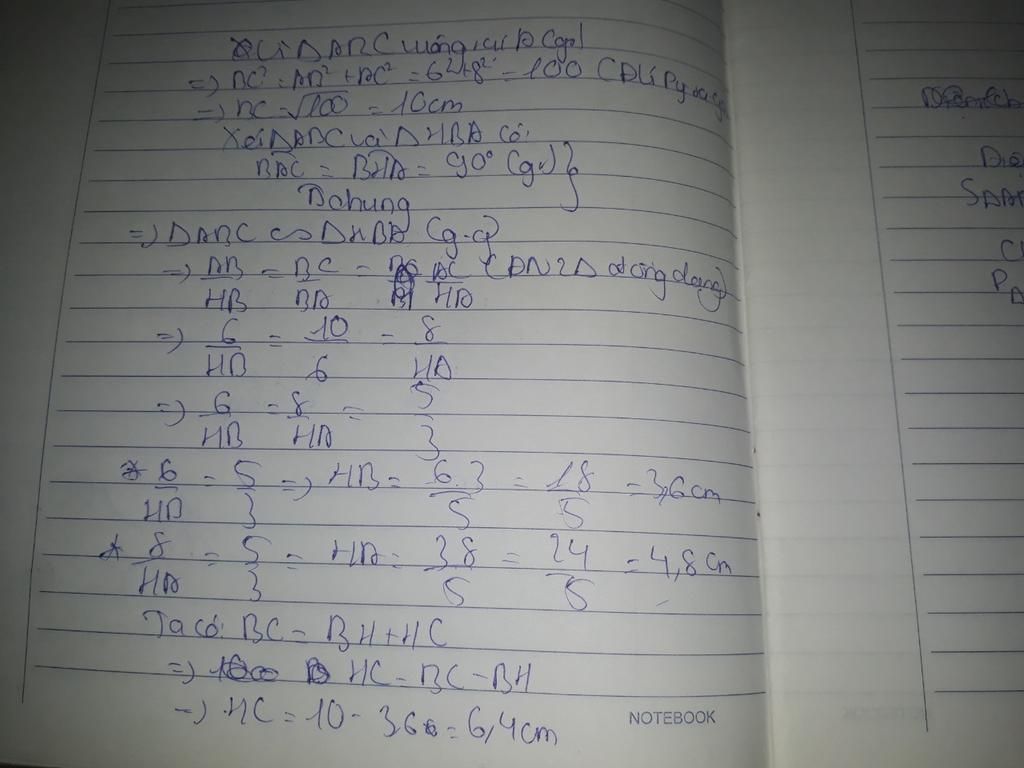 Xét ΔABC vuông tại A (gt)
=> BC² = AB² + AC² = 6² + 8² = 100 (ĐLí Pytago)
=> BC = √100 = 10cm
Xét ΔABC và ΔHBA có:
BAC = BHA = 90° (gt) }
B chung
=> ΔABC ∽ ΔHBA (g.g)
=> AB/HB = BC/BA = AC/HA (ĐN 2Δ đồng dạng)
=> 6/HB = 10/6 = 8/HA
=> 6/HB = 8/HA = 5/3
* 6/HB = 5/3 => HB = 6.3/5 = 18/5 = 3,6cm
* 8/HA = 5/3 = HA = 3.8/5 = 24/5 = 4,8cm
Ta có: BC = BH + HC
=> HC = BC - BH
=> HC = 10 - 3,6 = 6,4cm
NOTEBOOK